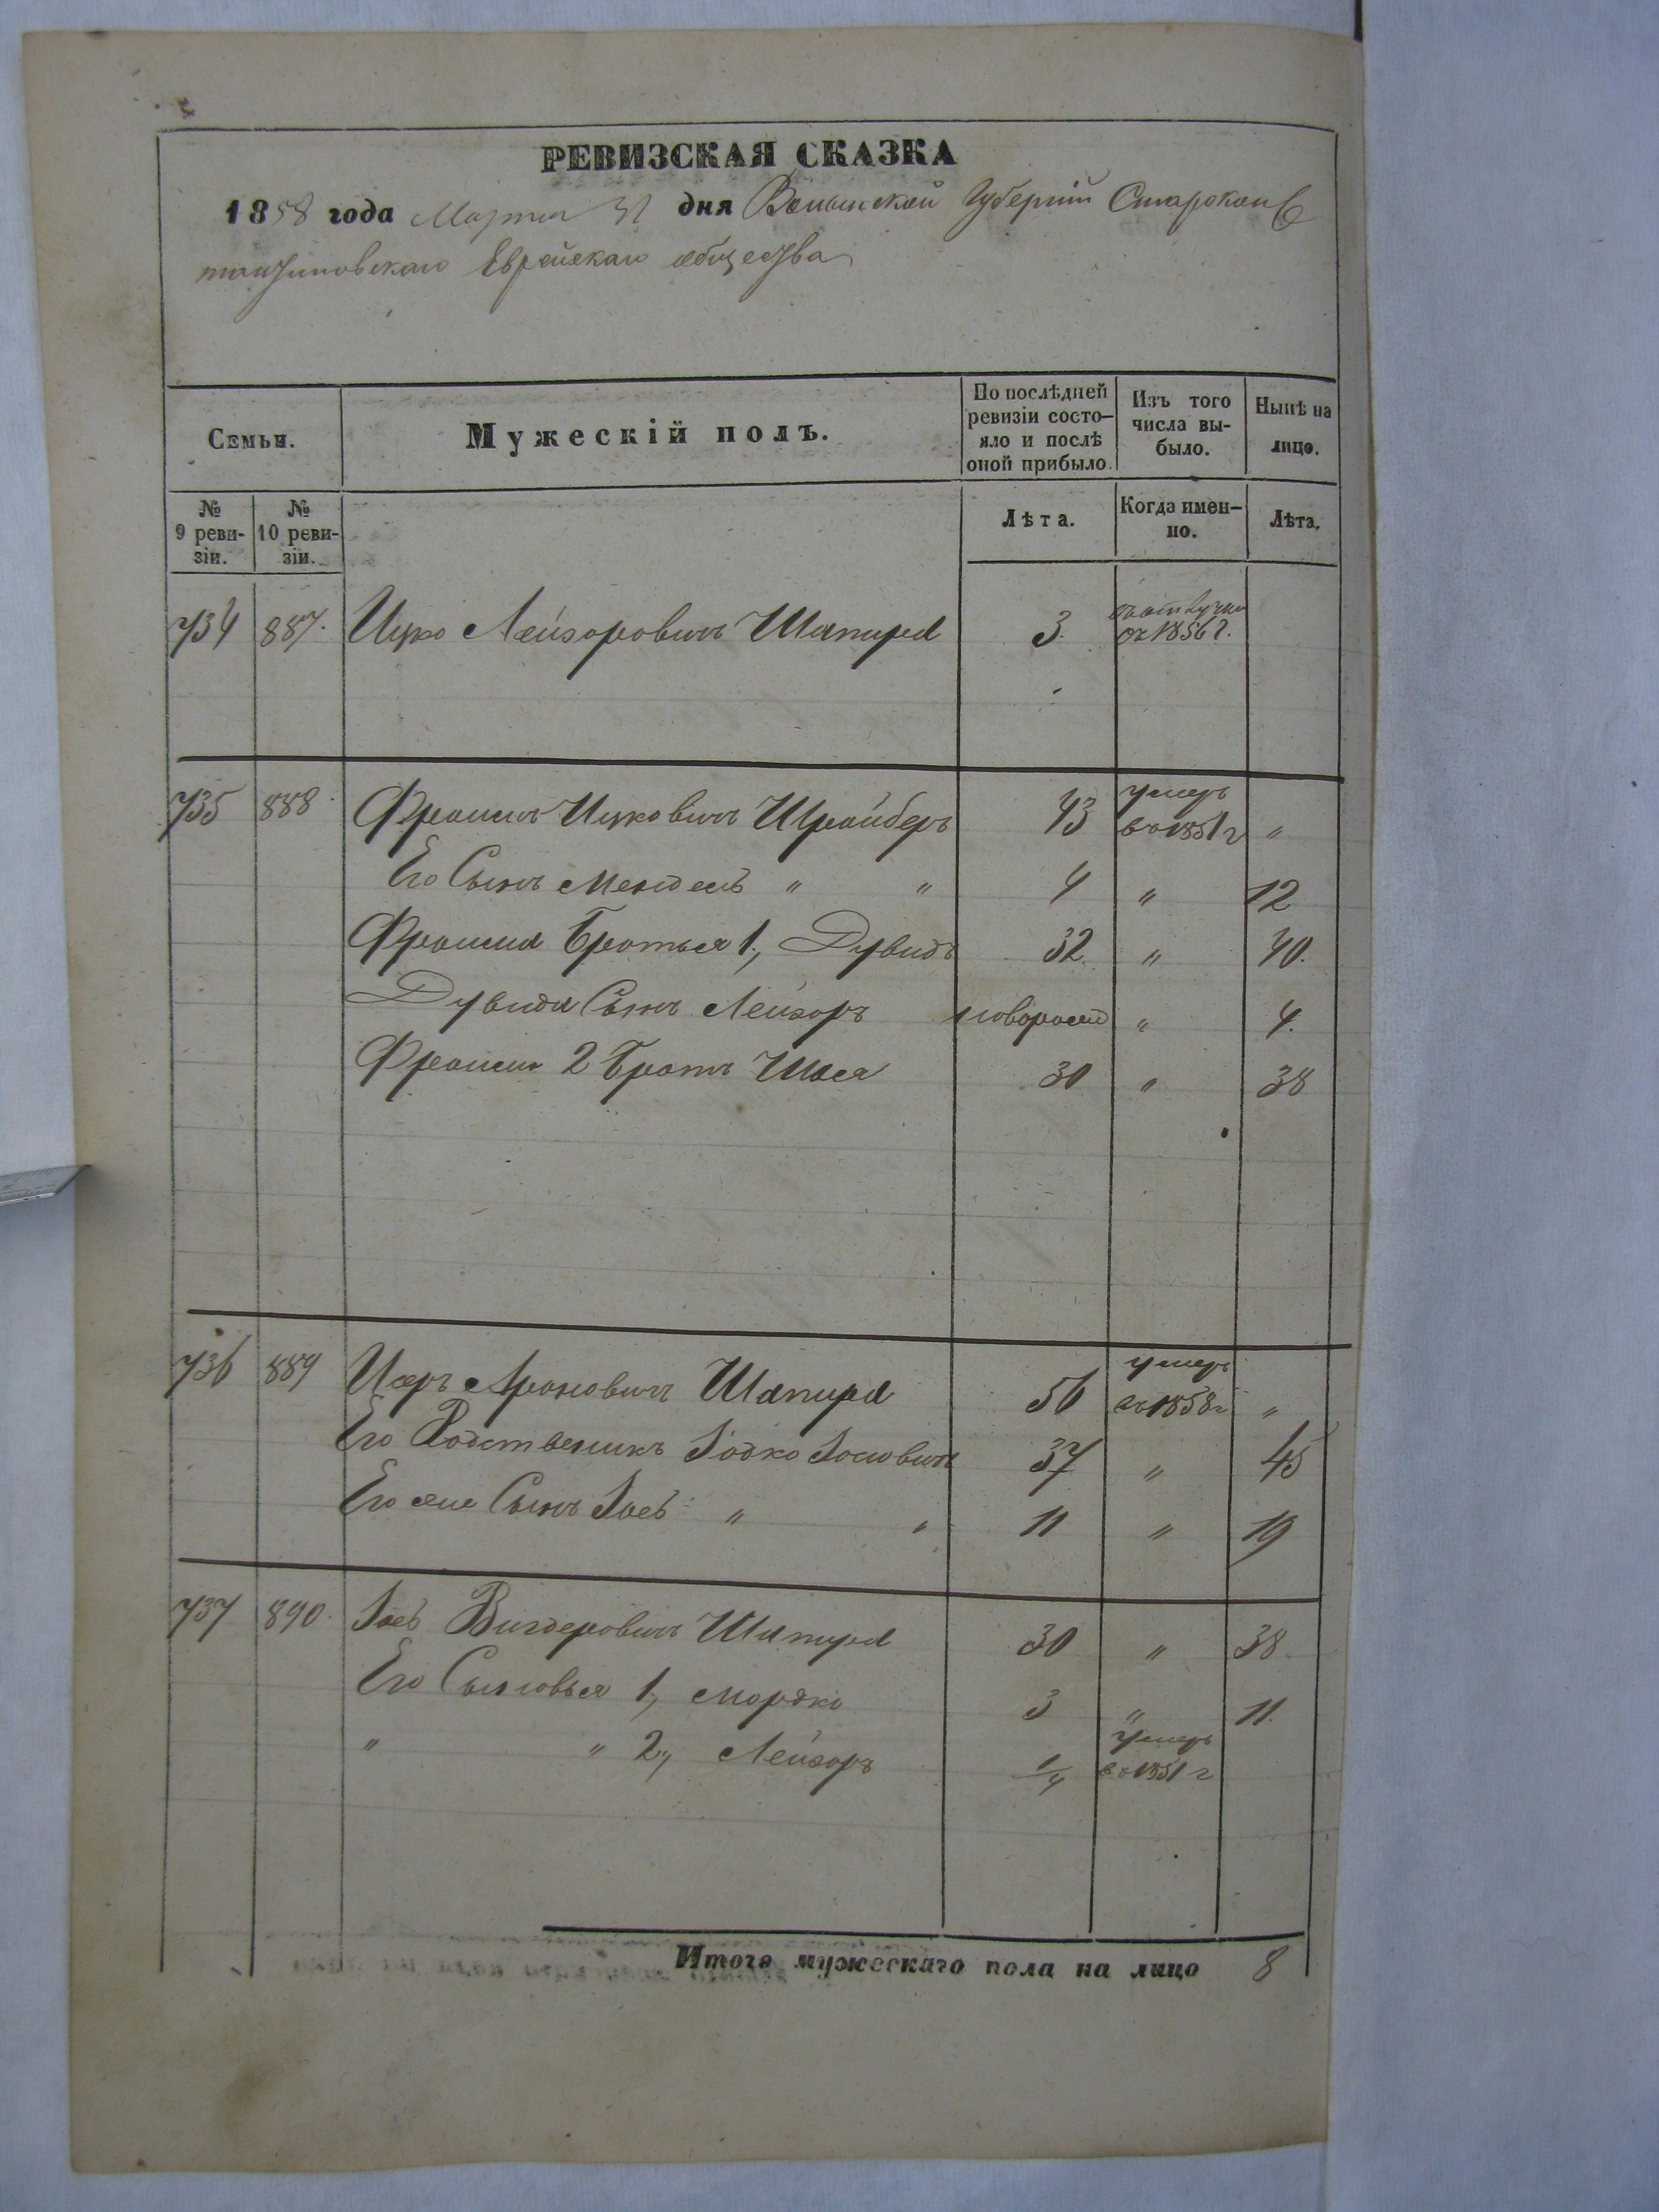 РЕВИЗСКАЯ СКАЗКА
1858 года Марта 31 дня Волынской Губерніи Староконс
тантиновскаго Еврейскаго общества
Семьи.
Мужескій полъ.
По послѣдней ревизіи состо- яло и послѣ оной прибыло.
Изъ того числа вы- было.
Нынѣ на лицо.
№ 9 реви- зіи.
№ 10 реви- зіи.
Лѣта.
Когда имен- но.
Лѣта.
734 887. Ицко Лейзоровичъ Шапира 3. въ отлучке съ 1856 г.
735 888 Фроимъ Ицковичъ Шрайберъ 43 умеръ въ 1851 г "
Его Сынъ Мендель " " 4 " 12
Фроима Братья 1., Дувидъ 32. " 40.
Дувида Сынъ Лейзоръ новорожд " 4.
Фроима 2 Братъ Шая 30 " 38
736 889 Исеръ Ароновичъ Шапира 56 умеръ въ 1858 г "
Его Родственикъ Іодко Іосиовичъ 37 " 45
Его же Сынъ Іосъ " " 11 " 19
737 890. Іосъ Вигдеровичъ Шапира 30 " 38
Его Сыновья 1., Мордко 3 " 11.
" " 2., Лейзоръ 1/4 умеръ въ 1851 г
Итого мужескаго пола на лицо 8